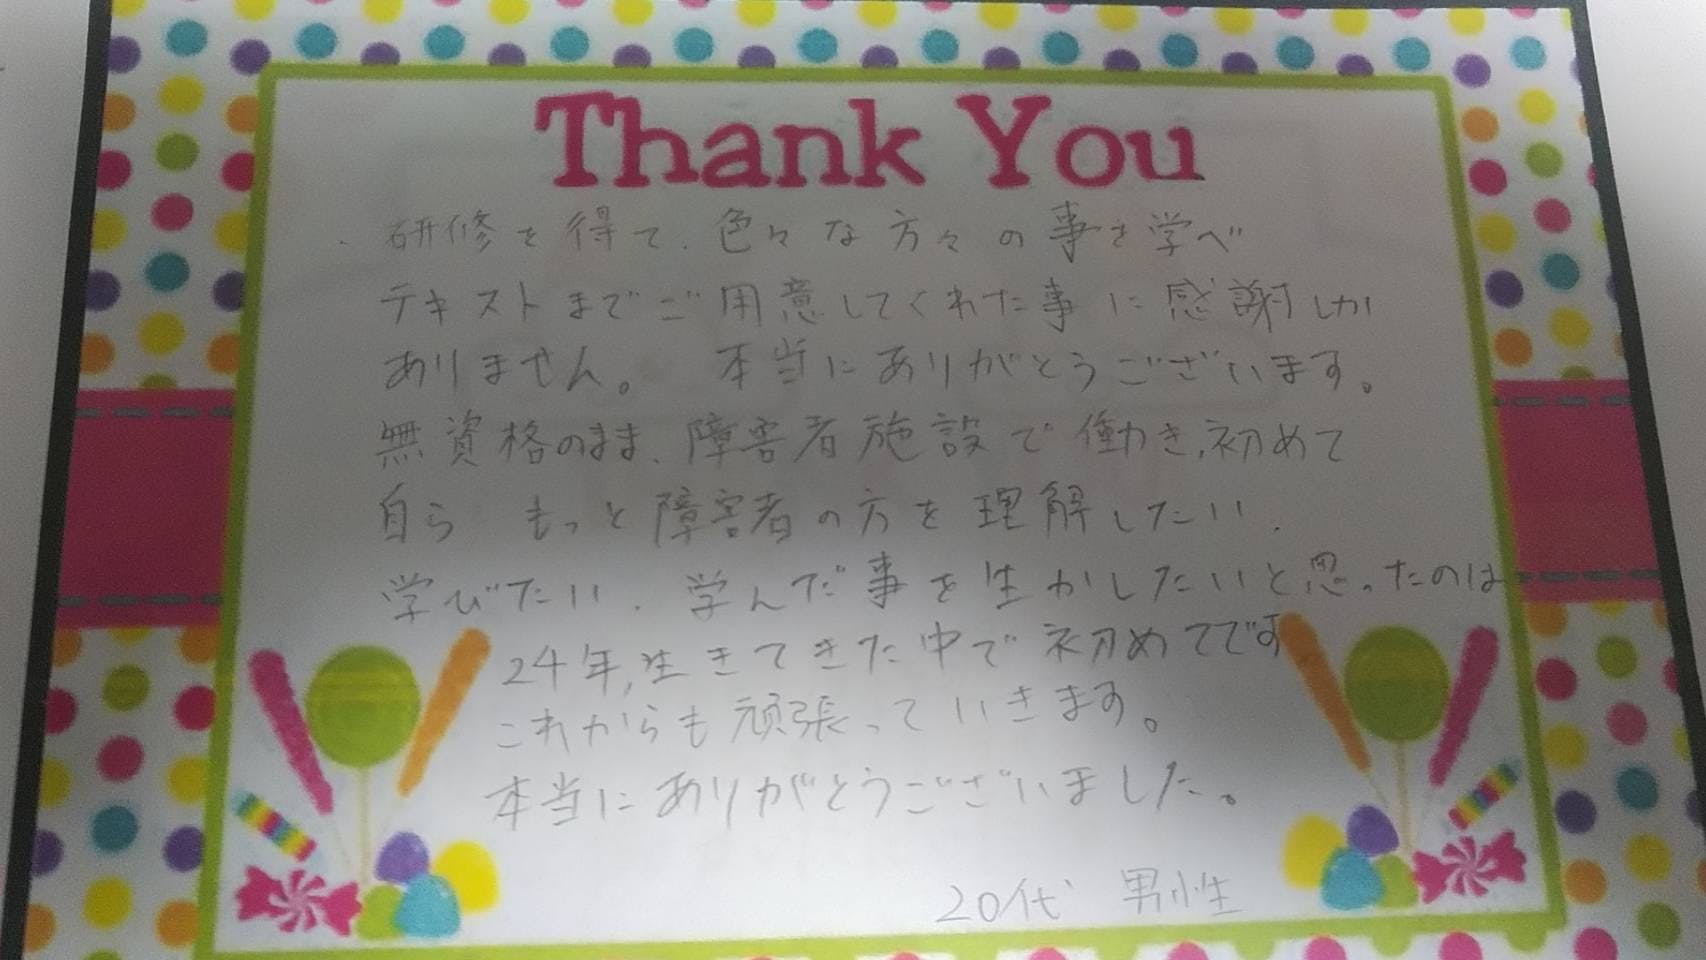 Thank You
研修を得て、色々な方々の事を学べ
テキストまでご用意してくれた事に感謝しか
ありません。 本当にありがとうございます。
無資格のまま、障害者施設で働き、初めて
自ら もっと障害者の方を理解したい、
学びたい、学んだ事を生かしたいと思ったのは
24年、生きてきた中で初めてです
これからも頑張っていきます。
本当にありがとうございました。
20代 男性